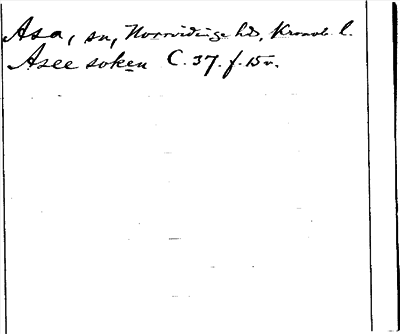 Asa, sn, Norrvidinge hd, Kronob. l.
Asee soken C. 37. f. 15 v.